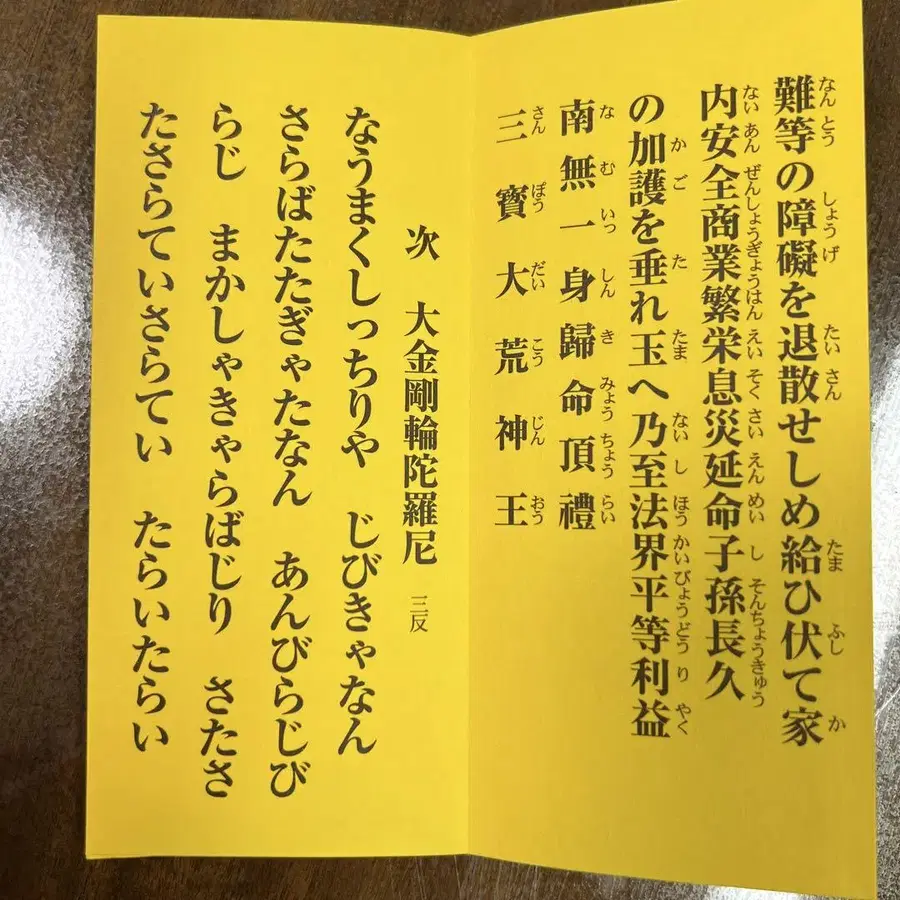 難等の障礙を退散せしめ給ひ伏て家
内安全商業繁栄息災延命子孫長久
の加護を垂れ玉へ乃至法界平等利益
南無一身歸命頂禮
三寳大荒神王
次　大金剛輪陀羅尼　三反
なうまくしっちりや　じびきゃなん
さらばたたぎゃたなん　あんびらじび
らじ　まかしゃきゃらばじり　さたさ
たさらていさらてい　たらいたらい